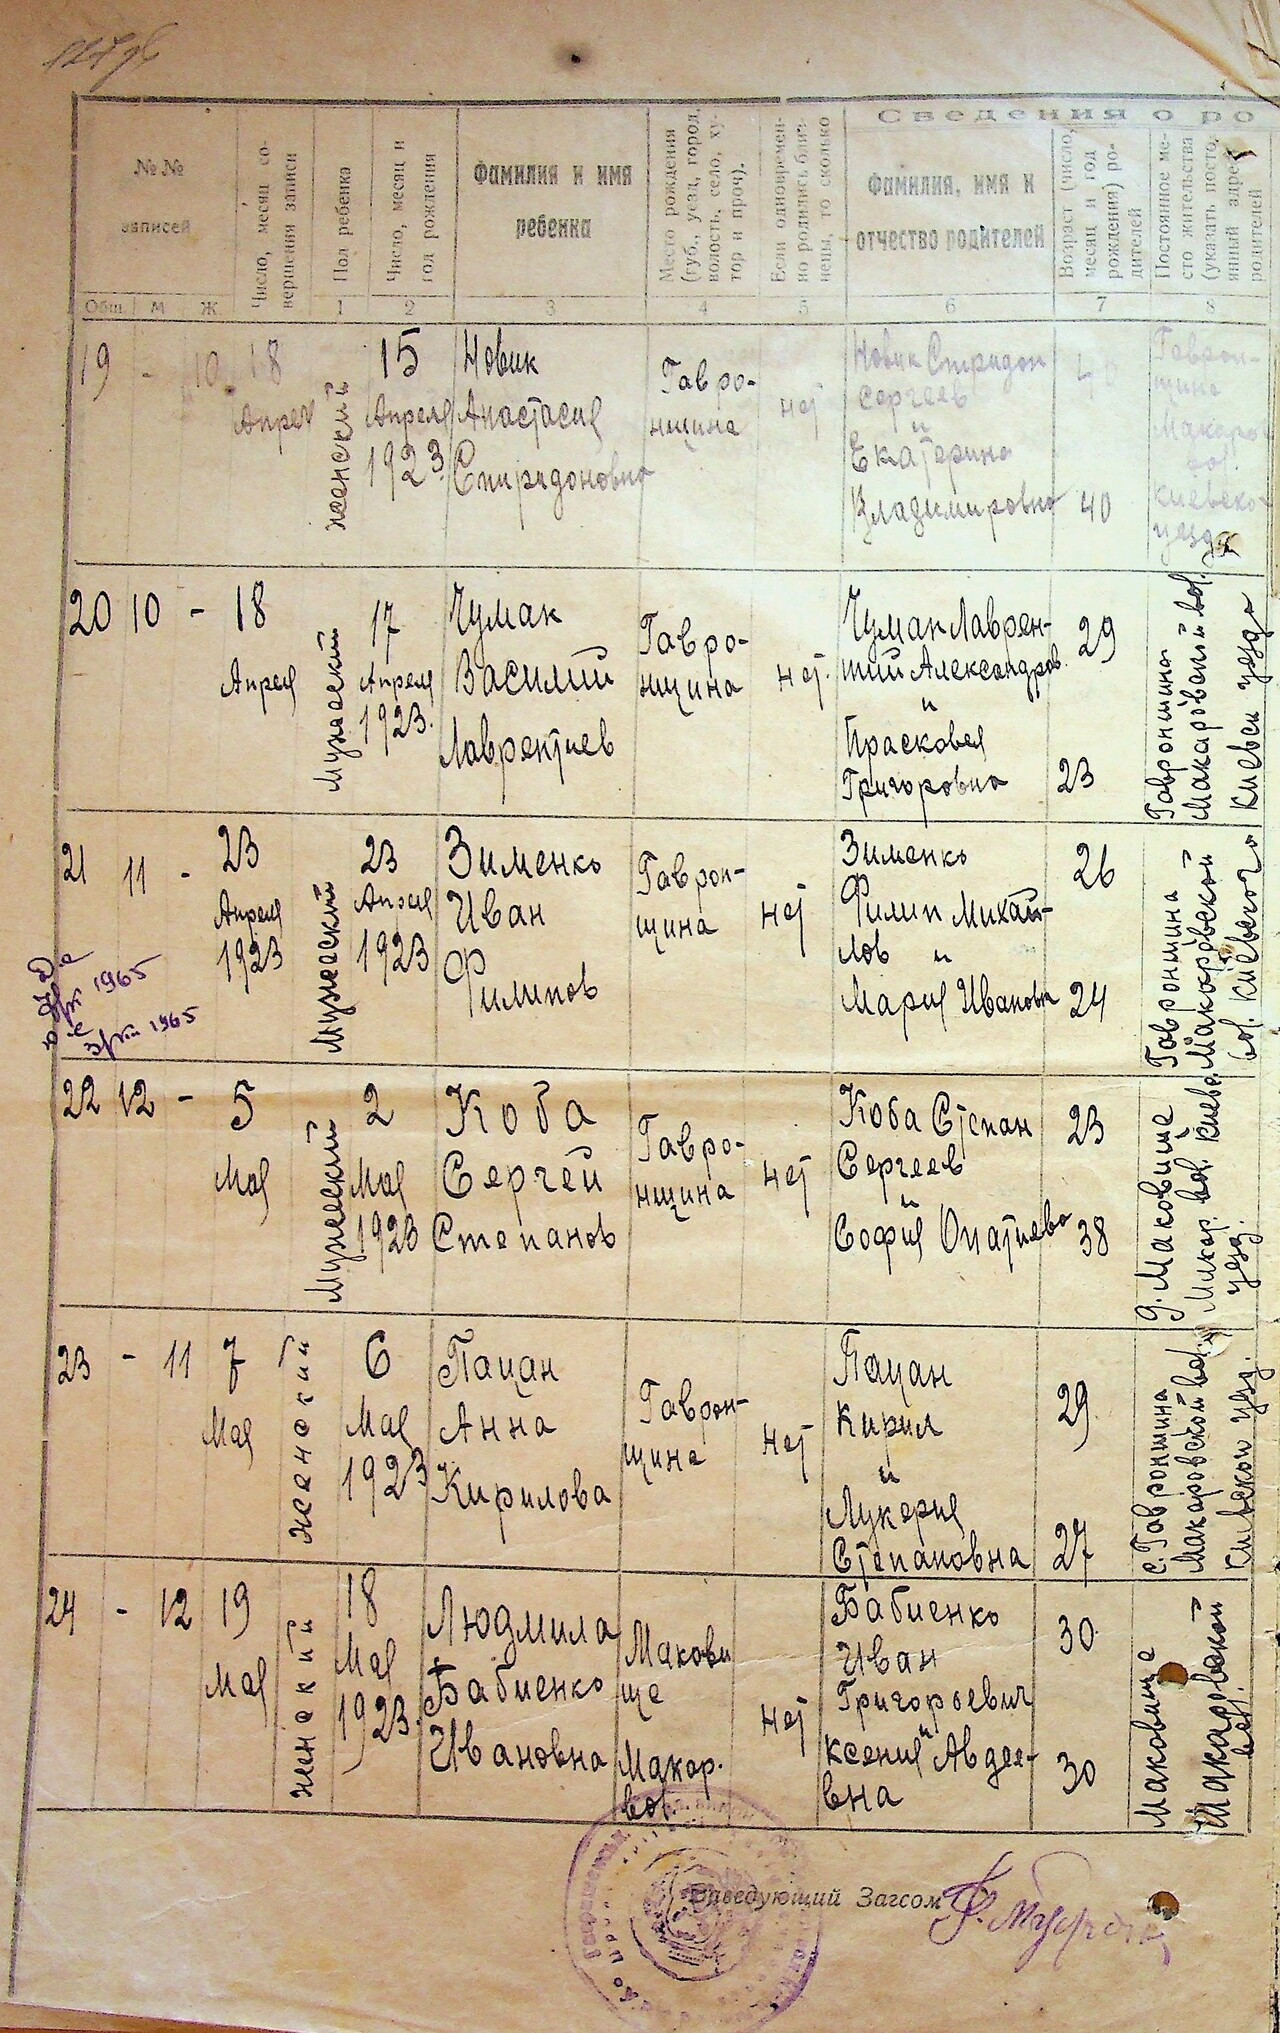 Сведения о ро
№ № записей
Общ. М Ж
Число, месяц совершения записи
Пол ребенка
1
Число, месяц и год рождения
2
Фамилия и имя ребенка
3
Место рождения (губ., уезд, город, волость, село, хутор и проч).
4
Если одновременно родились близнецы, то сколько
5
Фамилия, имя и отчество родителей
6
Возраст (число, месяц и год рождения) родителей
7
Постоянное место жительства (указать постоянный адрес) родителей
8
19 - 10
18
Апрел
женский
15
Апреля
1923.
Новик
Анастасия
Спиридоновна
Гавро-
нщина
нет
Новик Спиридон
Сергеев
и
Екатерина
Владимировна
40
Гаврон-
щина
Макаро
вол.
Киевско-
уезда
20 10 -
18
Апреля
Мужеский
17
Апреля
1923.
Чумак
Василий
Лаврентиев
Гавро-
нщина
нет.
Чумак Лаврен-
тий Александров.
и
Прасковья
Григоровна
29
23
Гавронщина
Макаровской вол.
Киевск уезда
21 11 -
23
Апреля
1923
Мужеский
23
Апреля
1923
Зименко
Иван
Филипов
Гаврон-
щина
нет
Зименко
Филип Михай-
лов и
Мария Ивановна
26
24
Гавронщина
Макаровской
вол. Киевского
1965
1965
22 12 -
5
Мая
Мужеский
2
Мая
1923
Коба
Сергей
Степанов
Гавро-
нщина
нет
Коба Степан
Сергеев
и
София Опатиева
23
38
д. Маковище
Макар. вол. Киева
уезд.
23 - 11
7
Мая
женский
6
Мая
1923
Пацан
Анна
Кирилова
Гаврон-
щина
нет
Пацан
Кирил
и
Лукерия
Степановна
29
27
с. Гавронщина
Макаровской вол.
Киевской уезд.
24 - 12
19
Мая
женский
18
Мая
1923.
Людмила
Бабиенко
Ивановна
Макови
ще
Макар.
вол.
нет
Бабиенко
Иван
Григорьевич
и
Ксения Авдее-
вна
30
30
Маковище
Макаровской
вол.
Заведующий Загсом